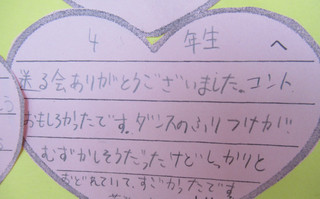 4年生へ
送る会ありがとうございました。コント
おもしろかったです。ダンスのふりつけが
むずかしそうだったけどしっかりと
おどれていて、すごかったです